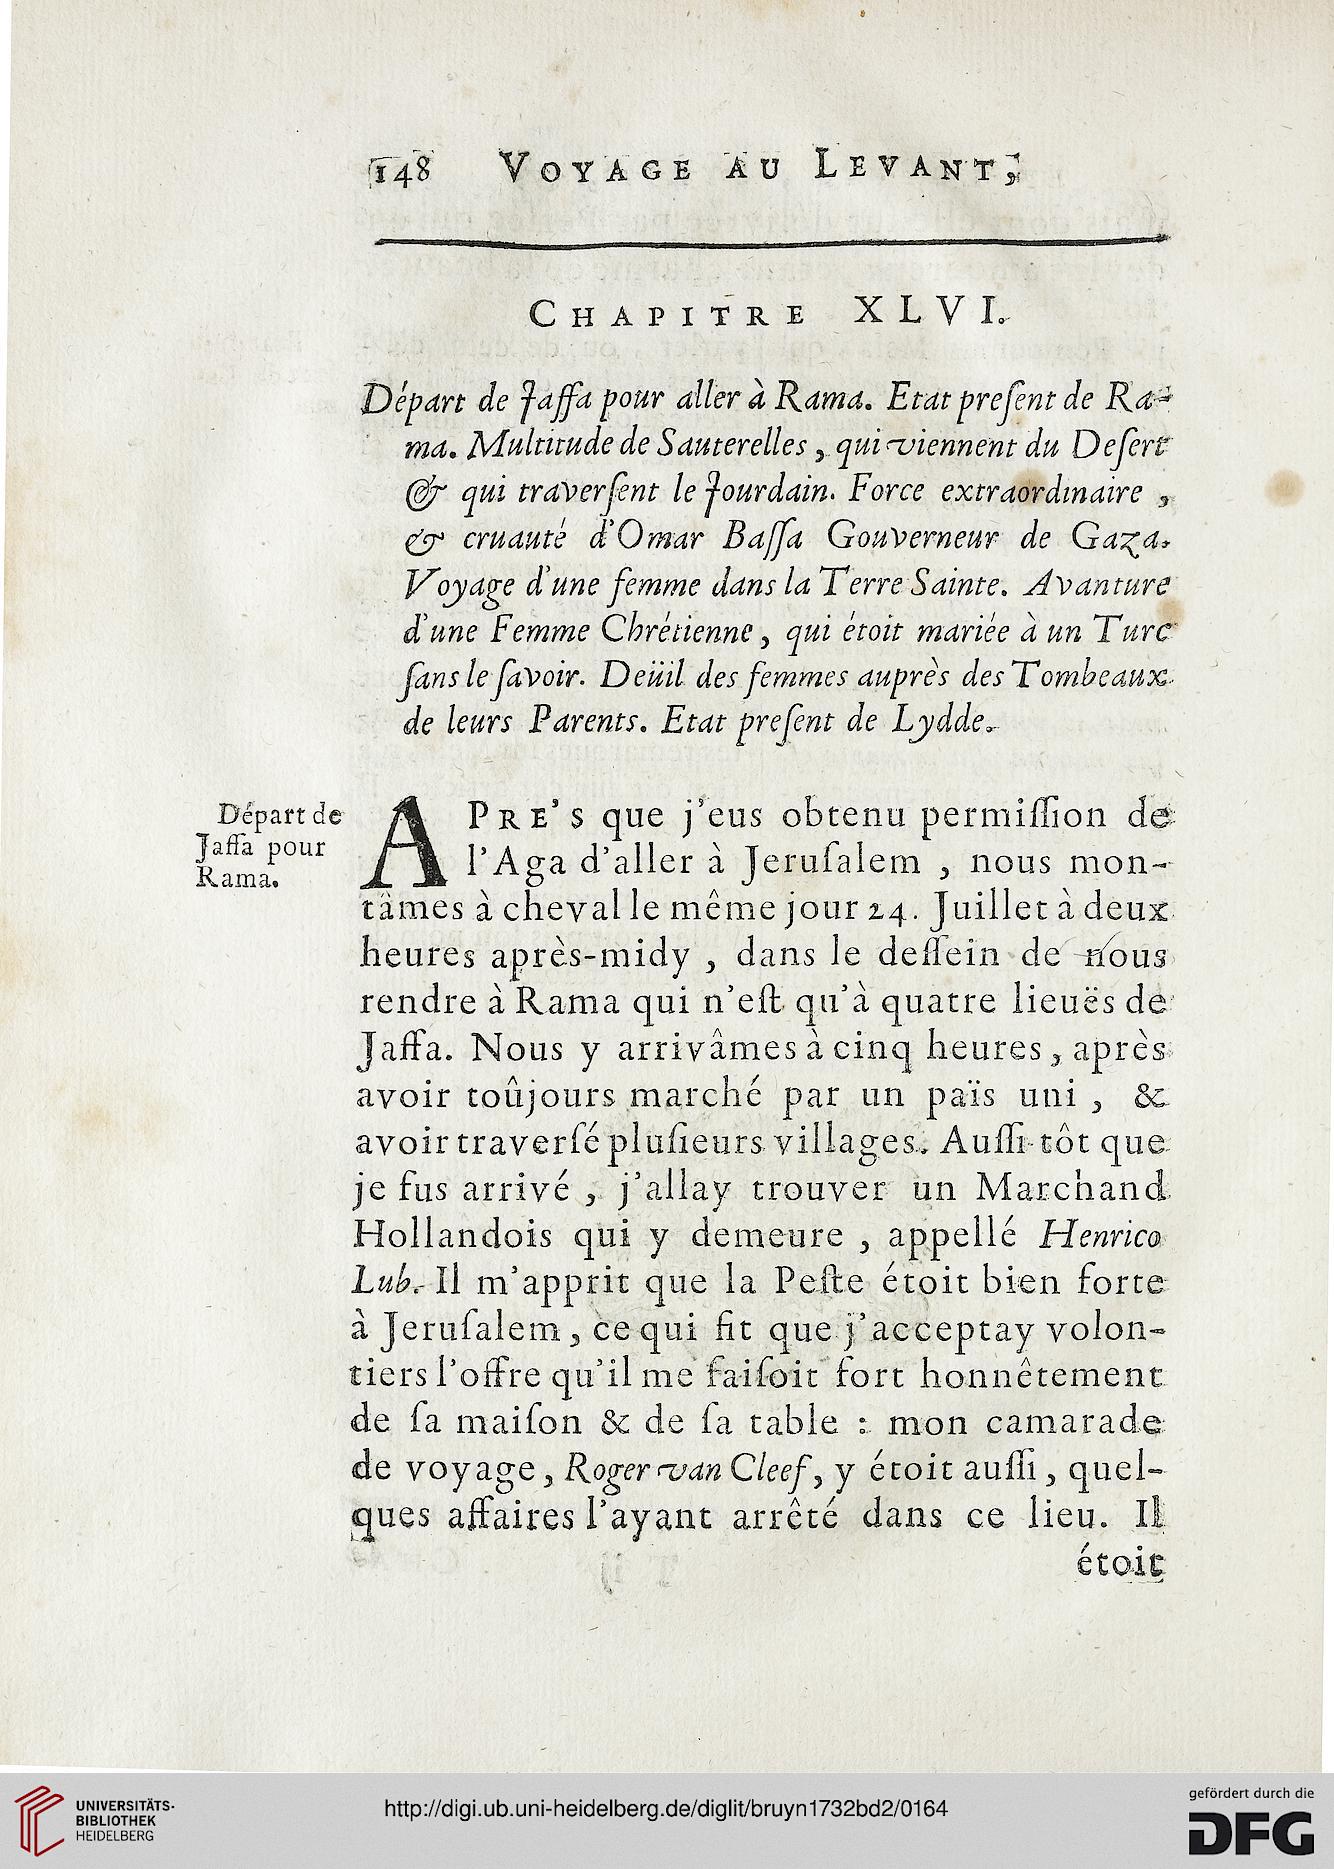 148 VOYAGE AU LEVANT,
CHAPITRE XLVI.
Départ de Jaffa pour aller à Rama. Etat preſent de Ra-
ma. Multitude de Sauterelles, qui viennent du Deſert
& qui traverſent le Jourdain. Force extraordinaire,
& cruauté d'Omar Baſſa Gouverneur de Gaza.
Voyage d'une femme dans la Terre Sainte. Avanture
d'une Femme Chrétienne, qui étoit mariée à un Turc
ſans le ſavoir. Deüil des femmes auprès des Tombeaux
de leurs Parents. Etat preſent de Lydde.
Départ de
Jaffa pour
Rama.
APRE'S que j'eus obtenu permiſſion de
l'Aga d'aller à Jeruſalem, nous mon-
tâmes à cheval le même jour 24. Juillet à deux
heures après-midy, dans le deſſein de nous
rendre à Rama qui n'eſt qu'à quatre lieuës de
Jaffa. Nous y arrivâmes à cinq heures, après
avoir toûjours marché par un païs uni, &
avoir traverſé pluſieurs villages. Auſſi-tôt que
je fus arrivé, j'allay trouver un Marchand
Hollandois qui y demeure, appellé Henrico
Lub. Il m'apprit que la Peſte étoit bien forte
à Jeruſalem, ce qui fit que j'acceptay volon-
tiers l'offre qu'il me faiſoit fort honnêtement
de ſa maiſon & de ſa table : mon camarade
de voyage, Roger van Cleef, y étoit auſſi, quel-
ques affaires l'ayant arrêté dans ce lieu. Il
étoit
UNIVERSITÄTS-
BIBLIOTHEK
HEIDELBERG
http://digi.ub.uni-heidelberg.de/diglit/bruyn1732bd2/0164
gefördert durch die
DFG